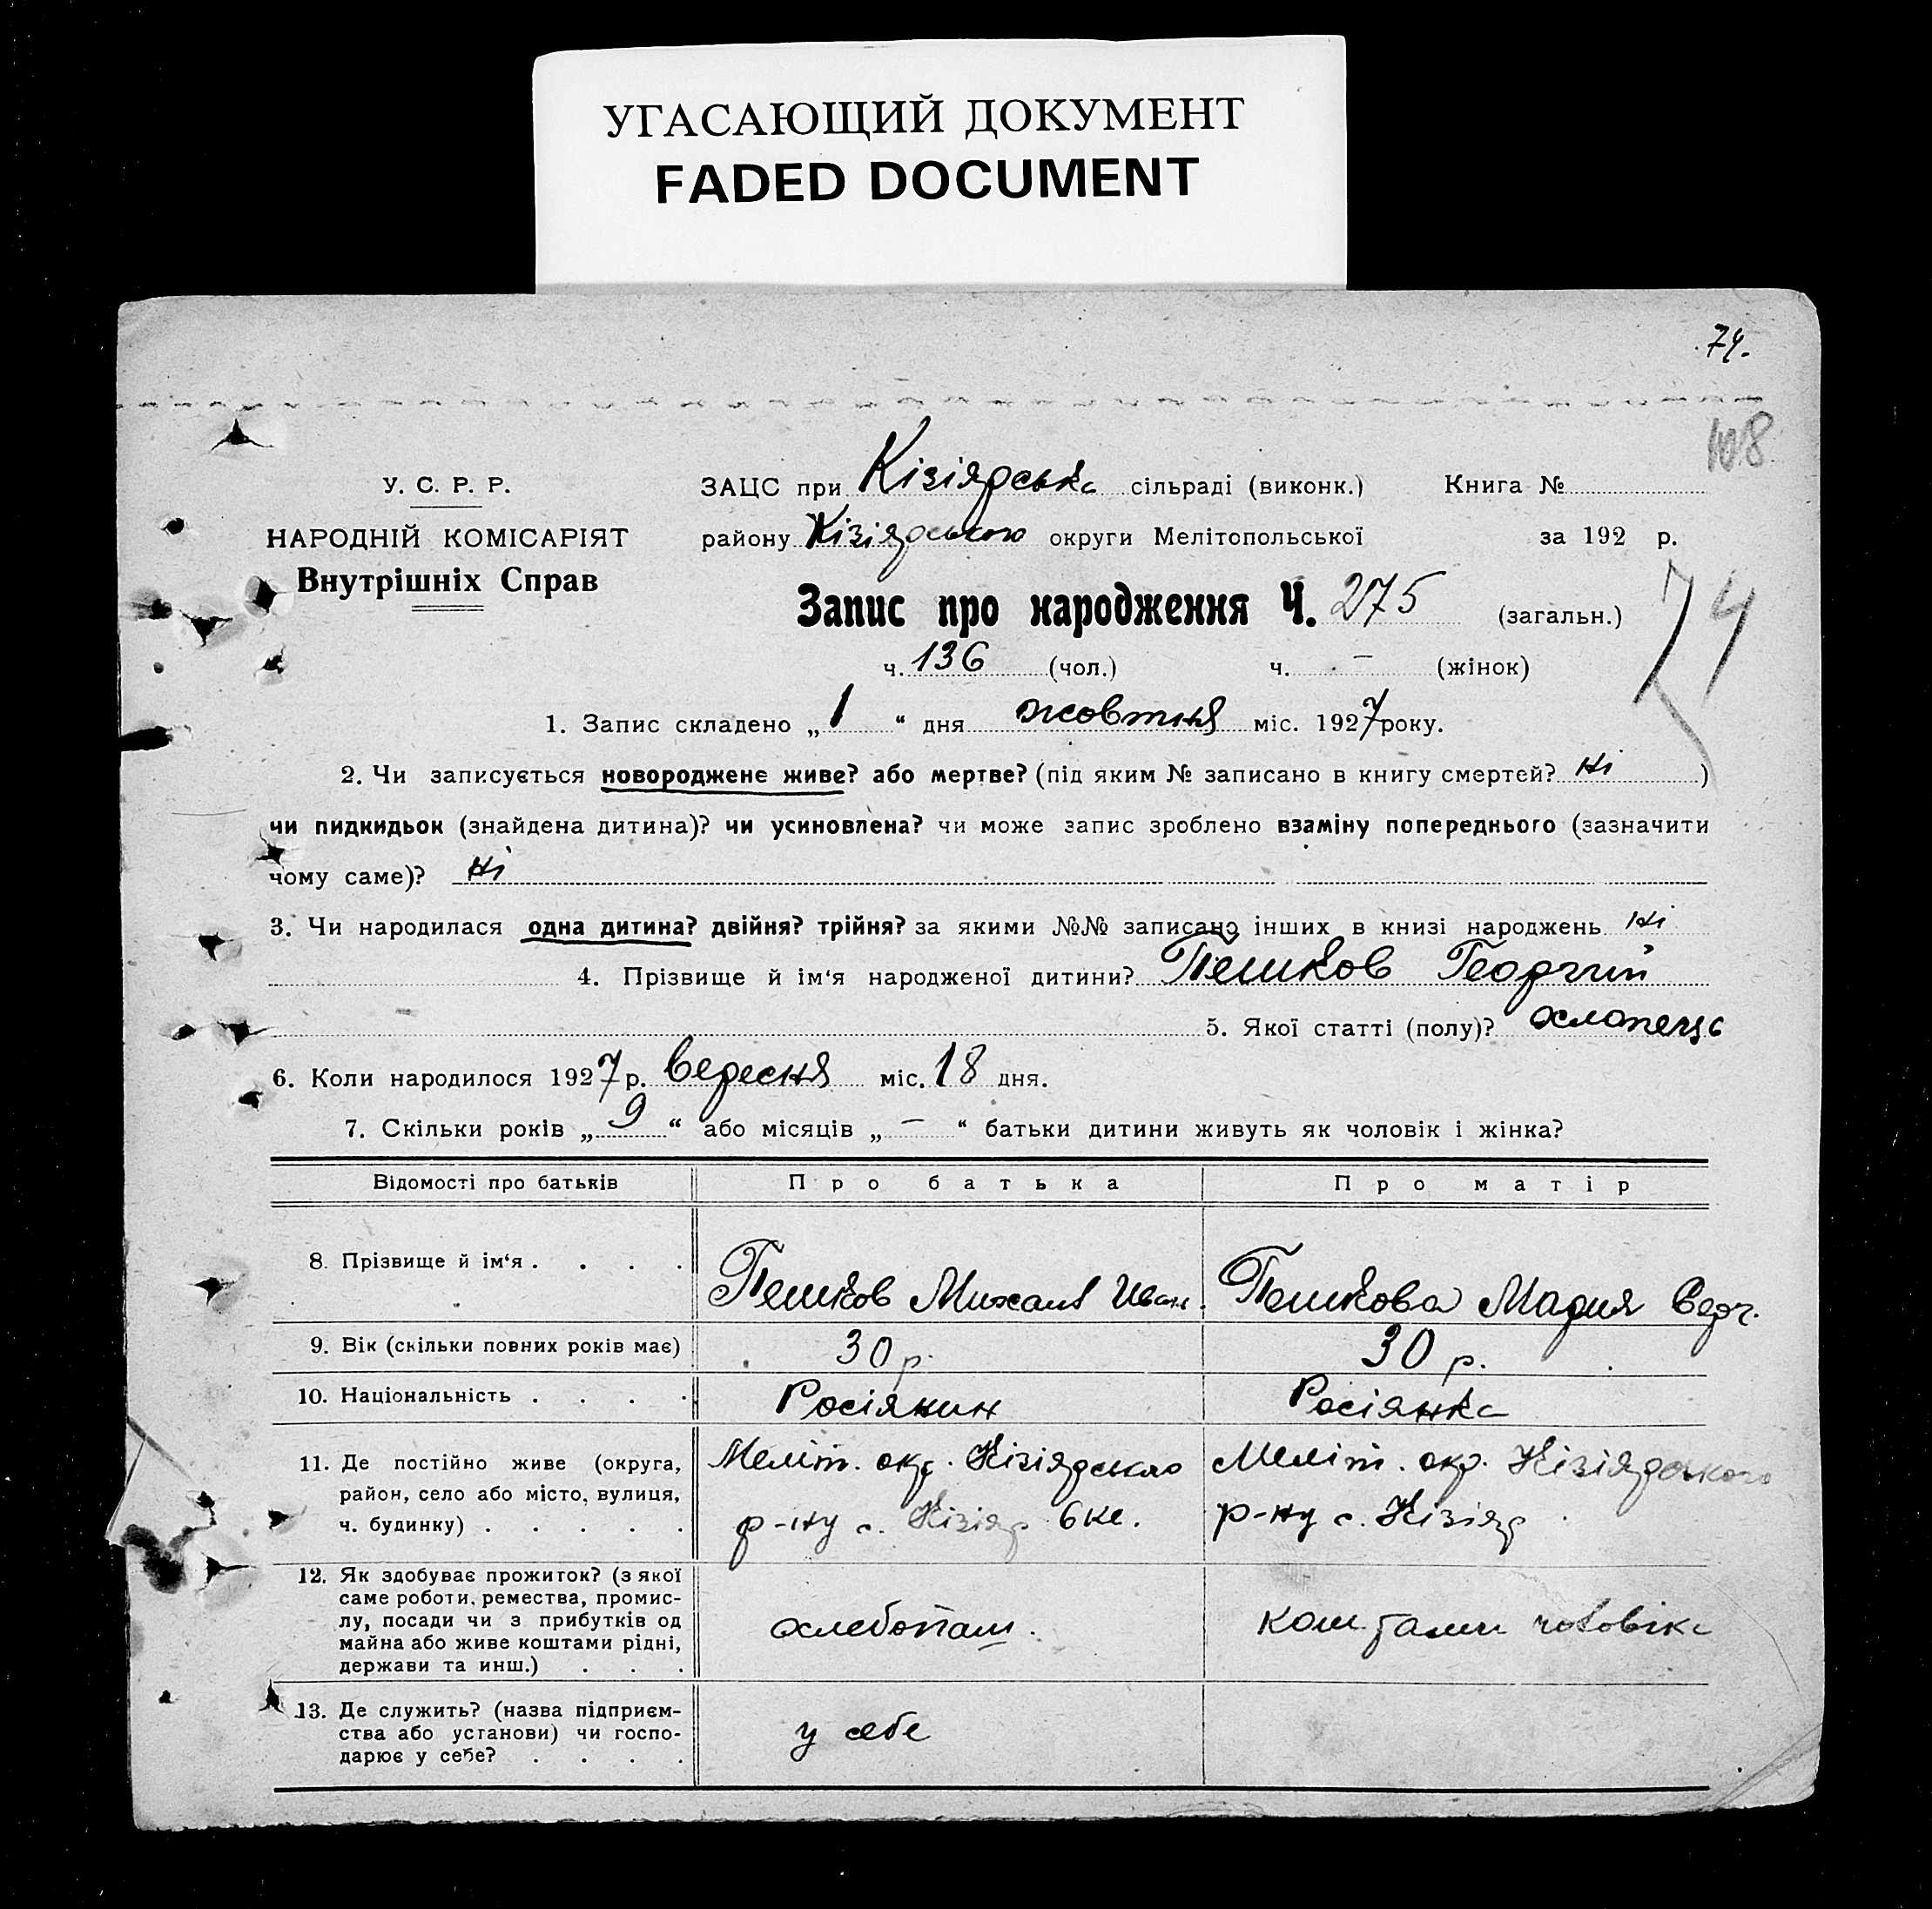 УГАСАЮЩИЙ ДОКУМЕНТ
FADED DOCUMENT
74.
108
У. С. Р. Р.
НАРОДНІЙ КОМІСАРІЯТ
Внутрішніх Справ
ЗАЦС при Кізіярська сільраді (виконк.) Книга №
району Кізіярського округи Мелітопольської за 192 р.
Запис про народження Ч. 275 (загальн.)
74
ч. 136 (чол.) ч. — (жінок)
1. Запис складено „ 1 “ дня жовтня міс. 1927 року.
2. Чи записується новороджене живе? або мертве? (під яким № записано в книгу смертей? ні )
чи пидкидьок (знайдена дитина)? чи усиновлена? чи може запис зроблено взаміну попереднього (зазначити
чому саме)? ні
3. Чи народилася одна дитина? двійня? трійня? за якими №№ записано інших в книзі народжень ні
4. Прізвище й ім‘я народженої дитини? Пешков Георгий
5. Якої статті (полу)? хлопець
6. Коли народилося 1927 р. вересня міс. 18 дня.
7. Скільки років „ 9 “ або місяців „ — “ батьки дитини живуть як чоловік і жінка?
Відомості про батьків Про батька Про матір
8. Прізвище й ім‘я . . . . Пешков Михаил Иван. Пешкова Мария
9. Вік (скільки повних років має) 30 р. 30 р.
10. Національність . . . . Росіянин Росіянка
11. Де постійно живе (округа,
район, село або місто, вулиця,
ч. будинку) . . . . .
Меліт. окр. Кізіярського
р-ну с. Кізіяр
Меліт. окр. Кізіярського
р-ну с. Кізіяр
12. Як здобуває прожиток? (з якої
саме роботи, ремества, промис-
лу, посади чи з прибутків од
майна або живе коштами рідні,
держави та инш.) . . .
хлебопаш.
коштами чоловіка
13. Де служить? (назва підприєм-
ства або установи) чи госпо-
дарює у себе? . . . .
у себе